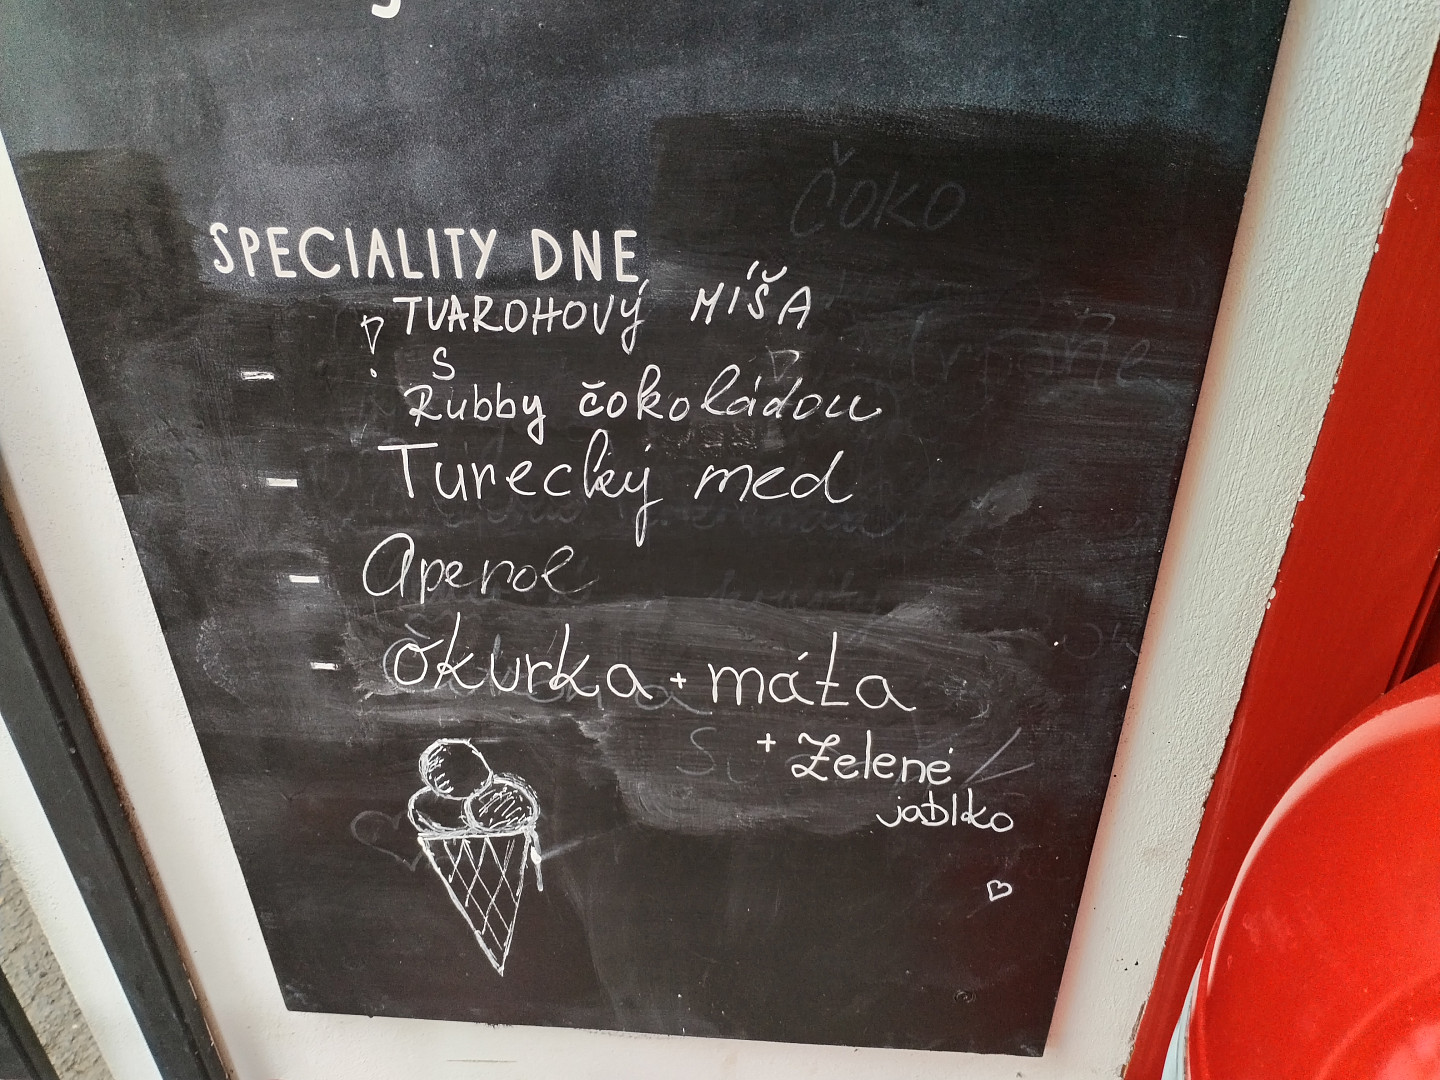 ČOKO
SPECIALITY DNE
! TVAROHOVÝ MÍŠA
S
- Rubby čokoládou
- Turecký med
- Aperol
- Okurka + máta
+ Zelené
jablko